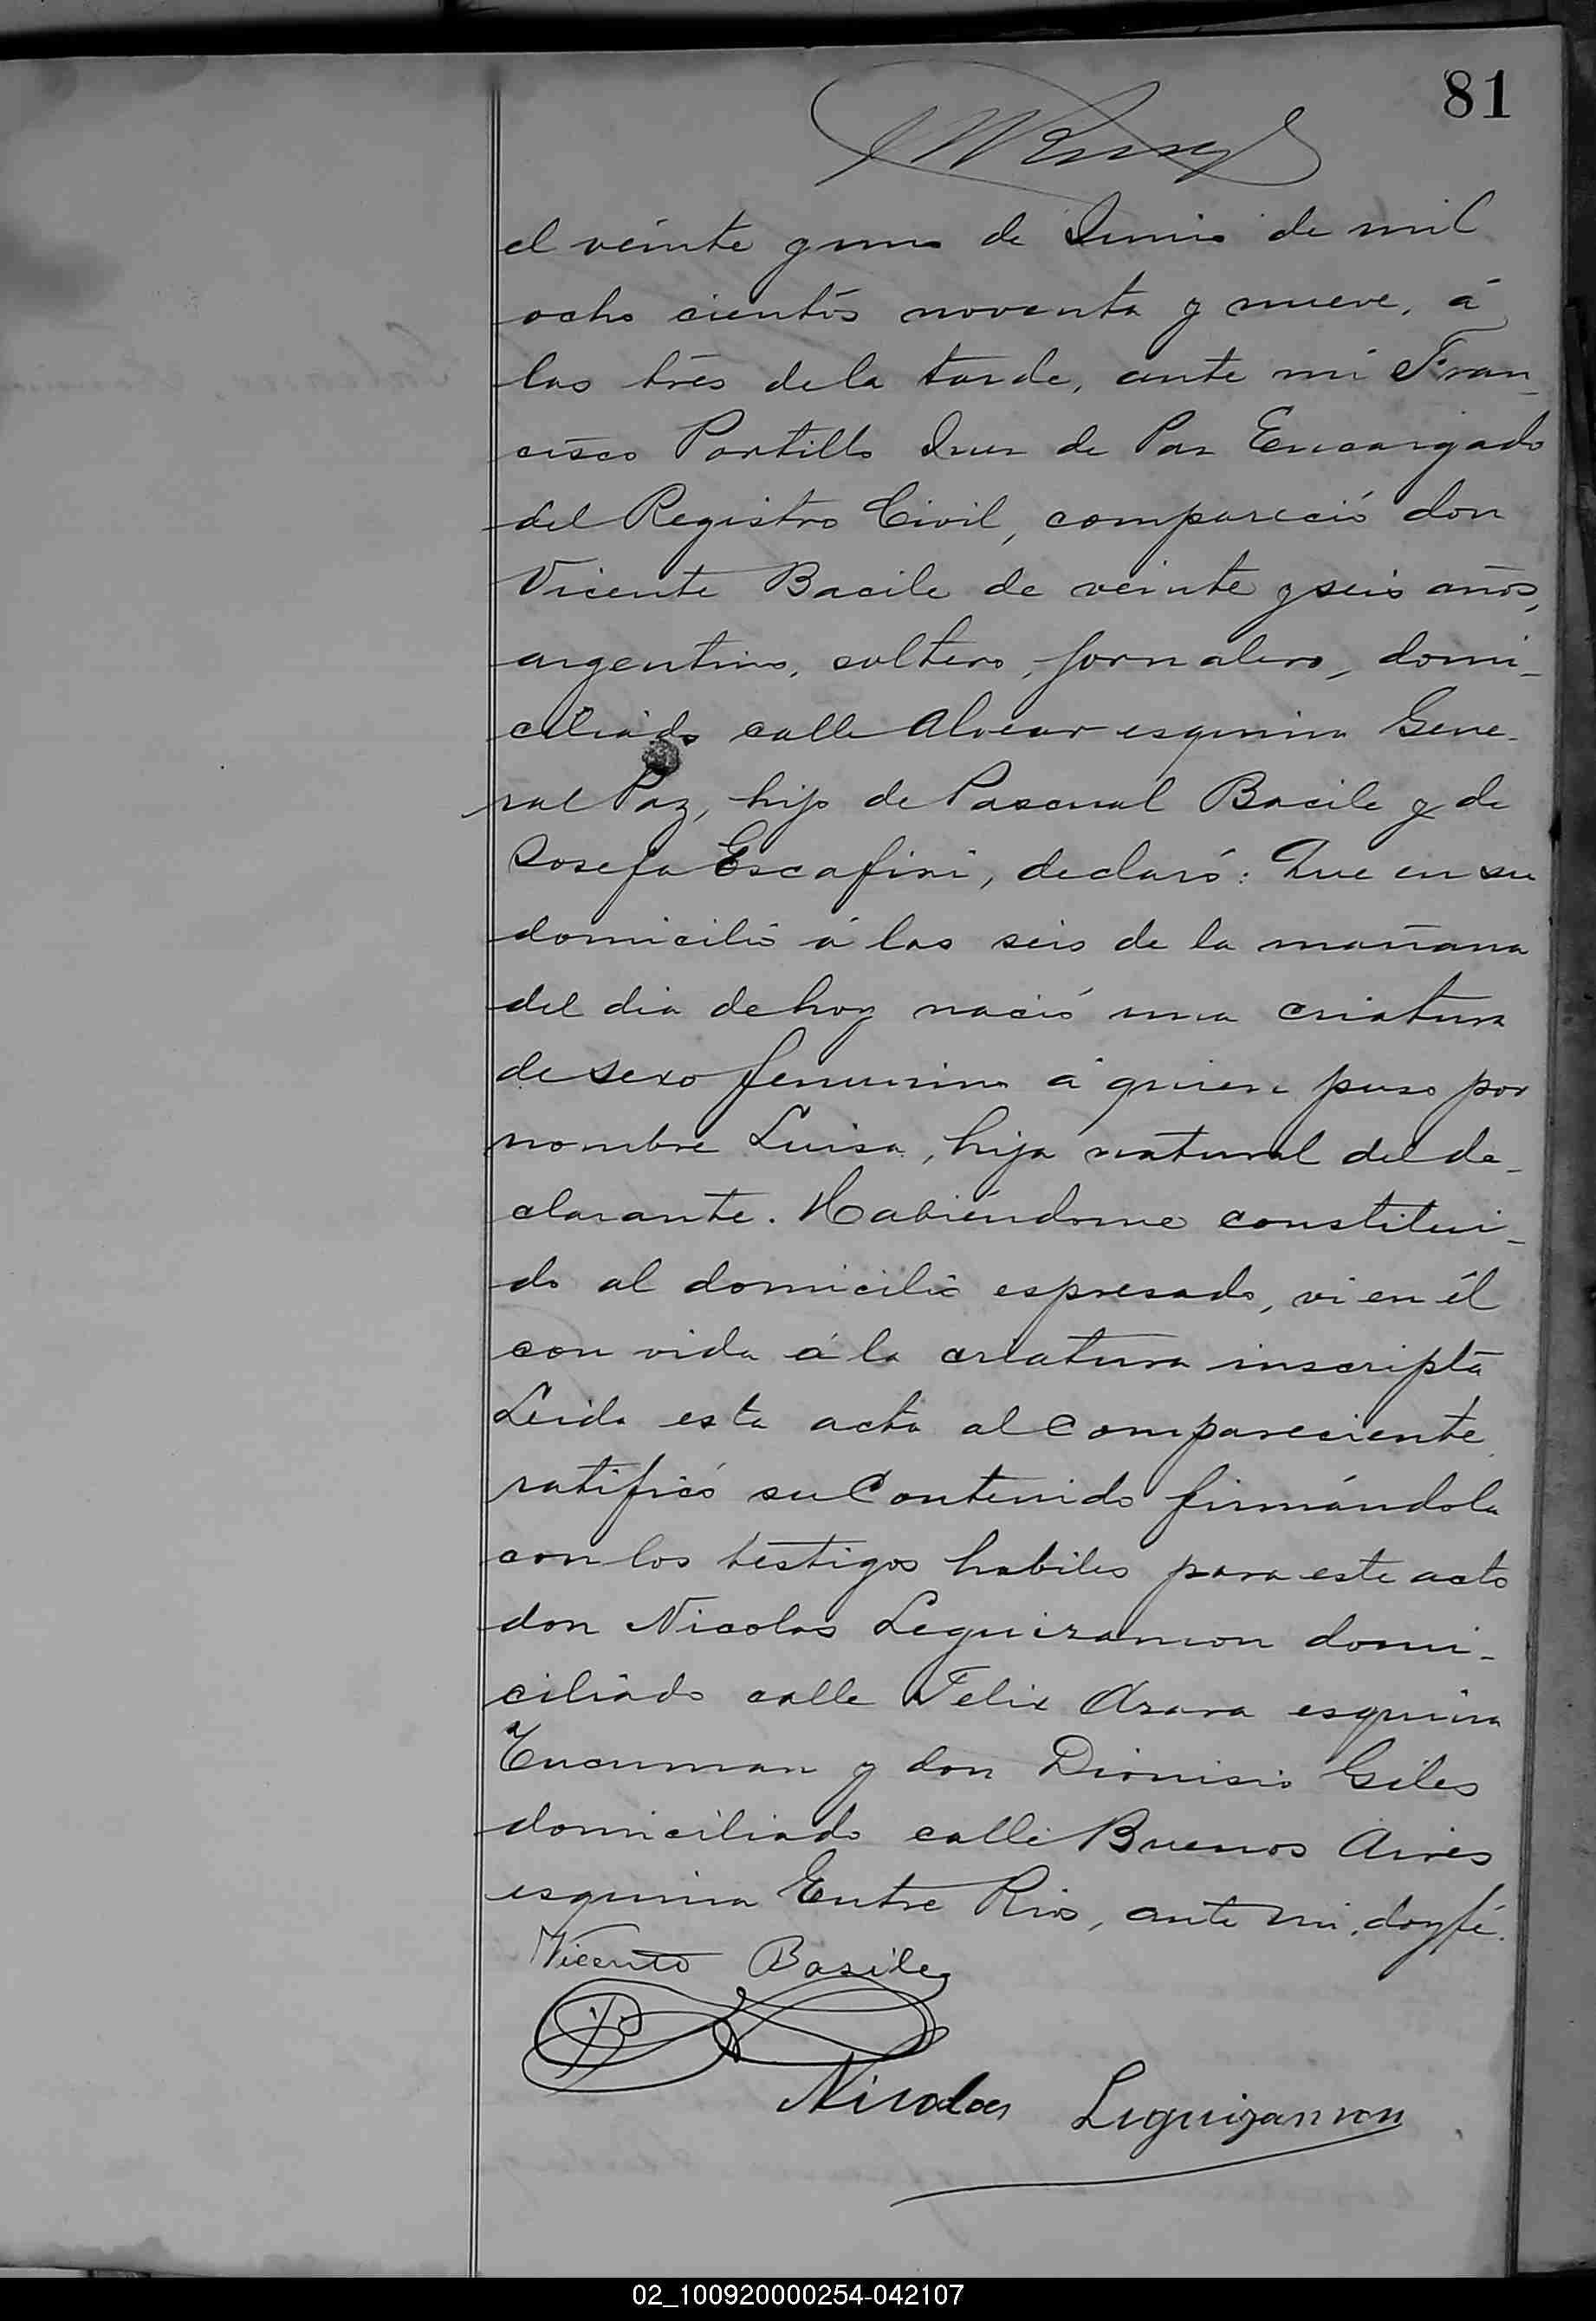 81
el veinte y uno de Junio de mil
ocho cientos noventa y nueve, á
las tres de la tarde, ante mi Fran-
cisco Portillo Juez de Paz Encargado
del Registro Civil, compareció don
Vicente Bacile de veinte y seis años,
argentino, soltero, jornalero, domi-
ciliado calle Alvear esquina Gene-
ral Paz, hijo de Pascual Bacile y de
Josefa Escafini, declaró: Que en su
domicilio á las seis de la mañana
del dia de hoy nació una criatura
de sexo femenino á quien puso por
nombre Luisa, hija natural del de-
clarante. Habiéndome constitui-
do al domicilio espresado, vi en él
con vida á la criatura inscripta
Leida esta acta al Compareciente
ratificó su Contenido firmándola
con los testigos habiles para este acto
don Nicolas Leguizamon domi-
ciliado calle Felix Azara esquina
Tucuman y don Dionisio Giles
domiciliado calle Buenos Aires
esquina Entre Rios, ante mi, doy fé.
Vicente Basile
Nicolas Leguizamon
02_100920000254-042107